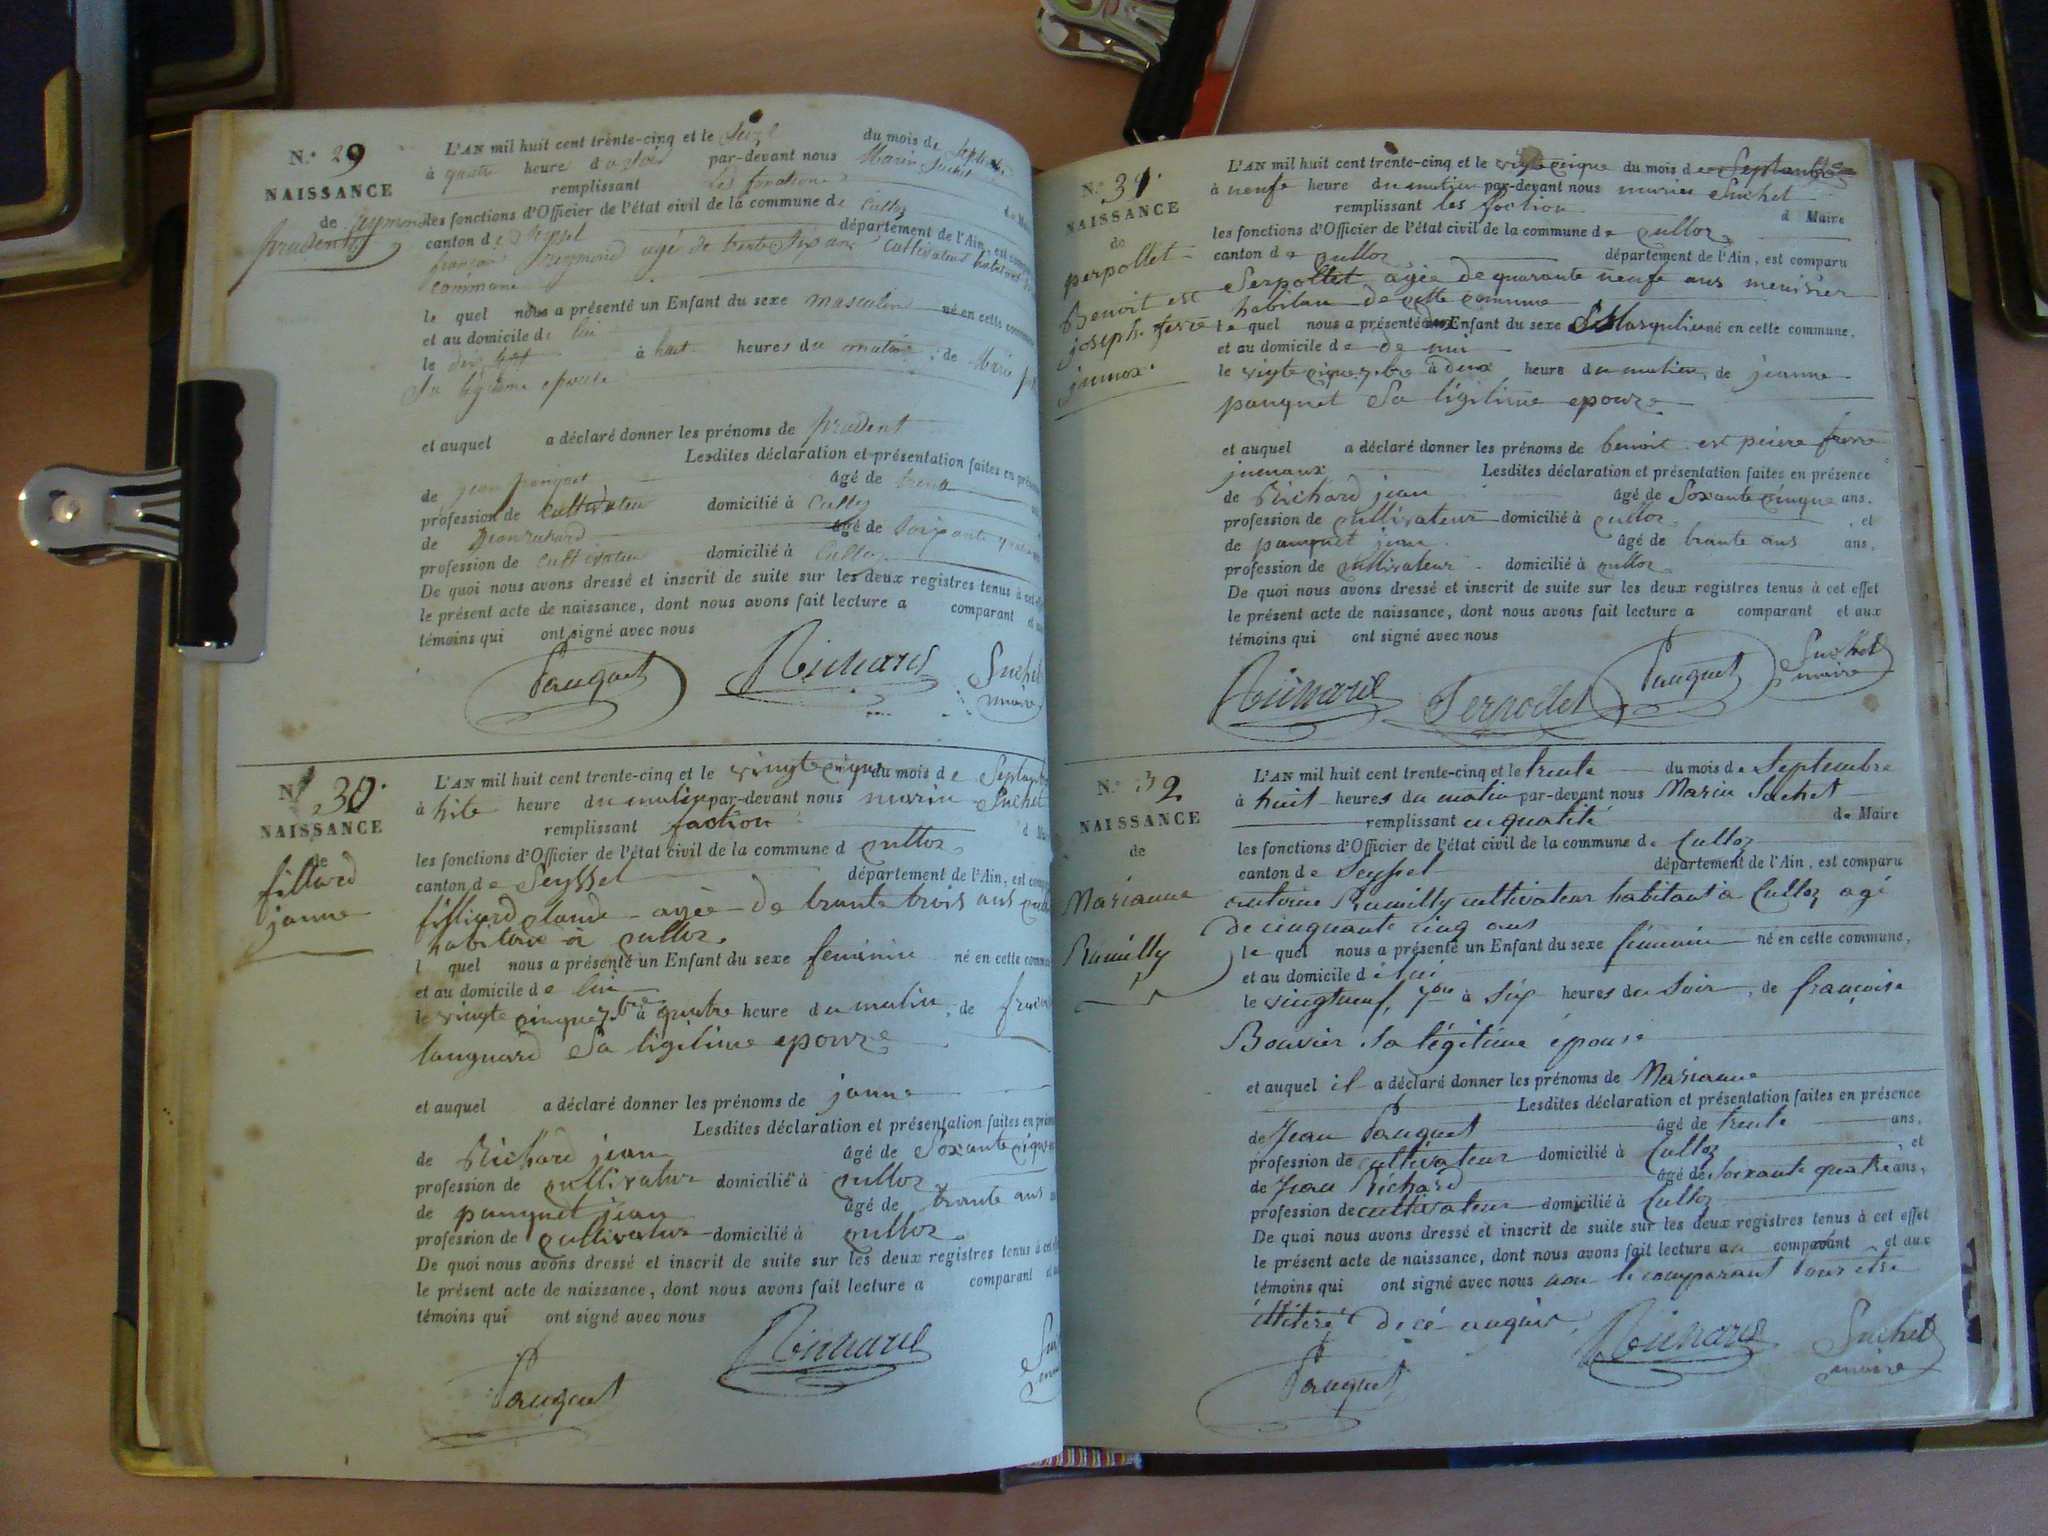 N.° 29
NAISSANCE
de Reymond
prudent
L'AN mil huit cent trente-cinq et le Seize du mois de Septembre
à quatre heure du soir par-devant nous Marin Suchet
remplissant les fonctions
les fonctions d'Officier de l'état civil de la commune de Culloz
canton de Seyssel département de l'Ain, est comparu
françois Reymond agé de trente Six ans Cultivateur habitant
commune
le quel nous a présenté un Enfant du sexe masculin né en cette commune
et au domicile de lui
le à huit heures du matin, de Marie
Sa légitime epouse
et auquel a déclaré donner les prénoms de prudent
Lesdites déclaration et présentation faites en
de jean pauquet âgé de trente
profession de cultivateur domicilié à Culloz
de Jean richard âgé de Soixante quatre
profession de cultivateur domicilié à Culloz
De quoi nous avons dressé et inscrit de suite sur les deux registres tenus à cet
le présent acte de naissance, dont nous avons fait lecture a comparant et
témoins qui ont signé avec nous
Pauquet Richard Suchet
maire
N.° 30
NAISSANCE
de
filliard
janne
L'AN mil huit cent trente-cinq et le vingte cinque du mois de Septanbre
à hite heure du matin par-devant nous marin Suchet
remplissant faction
les fonctions d'Officier de l'état civil de la commune d culloz
canton de Seyssel département de l'Ain, est
filliard claude agée de trante trois ans
habitan à culloz
l quel nous a présenté un Enfant du sexe feminin né en cette
et au domicile de lui
le vingte cinque 7bre à quatre heure du matin, de
languard Sa ligitime epouze
et auquel a déclaré donner les prénoms de janne
Lesdites déclaration et présentation faites en
de Richard jean âgé de Soxante cinque
profession de cultivatur domicilié à culloz
de pauquet jean âgé de trante ans
profession de cultivatur domicilié à culloz
De quoi nous avons dressé et inscrit de suite sur les deux registres tenus à
le présent acte de naissance, dont nous avons fait lecture a comparant
témoins qui ont signé avec nous
Pauquet Richard
N.° 31
NAISSANCE
de
perpollet
Benoit est
joseph frere
jumox
L'AN mil huit cent trente-cinq et le vigte cique du mois de Septanbre
à neufe heure du matin par-devant nous marin Suchet
remplissant les faction d Maire
les fonctions d'Officier de l'état civil de la commune de culloz
canton de culloz département de l'Ain, est comparu
Serpollet agée de quarante neufe ans menisier
habitan de cette commune
le quel nous a présenté deux Enfant du sexe Masqulin né en cette commune,
et au domicile de de mui
le vigte cique 7bre à deux heure du matin, de jeanne
pauquet Sa ligitime epouze
et auquel a déclaré donner les prénoms de benoit est piere frere
jumaux Lesdites déclaration et présentation faites en présence
de Richard jean âgé de Soxante cinque ans,
profession de cultivateur domicilié à culloz, et
de pauquet jean âgé de trante ans ans,
profession de cultivateur domicilié à culloz
De quoi nous avons dressé et inscrit de suite sur les deux registres tenus à cet effet
le présent acte de naissance, dont nous avons fait lecture a comparant et aux
témoins qui ont signé avec nous
Richard Serpollet Pauquet Suchet
maire
N.° 32
NAISSANCE
de
Marianne
Rumilly
L'AN mil huit cent trente-cinq et le trente du mois de Septembre
à huit heures du matin par-devant nous Marin Suchet
remplissant en qualité de Maire
les fonctions d'Officier de l'état civil de la commune de Culloz
canton de Seyssel département de l'Ain, est comparu
antoine Rumilly cultivateur habitant à Culloz agé
de cinquante cinq ans
le quel nous a présenté un Enfant du sexe féminin né en cette commune,
et au domicile de lui
le vingt neuf, 7bre à Six heures du Soir, de françoise
Bouvier Sa légitime épouse
et auquel il a déclaré donner les prénoms de Marianne
Lesdites déclaration et présentation faites en présence
de Jean Pauquet âgé de trente ans,
profession de cultivateur domicilié à Culloz, et
de Jean Richard âgé de Soixante quatre ans,
profession de cultivateur domicilié à Culloz
De quoi nous avons dressé et inscrit de suite sur les deux registres tenus à cet effet
le présent acte de naissance, dont nous avons fait lecture au comparant et aux
témoins qui ont signé avec nous non le comparant pour etre
illitéré de ce enquis
Pauquet Richard Suchet
maire